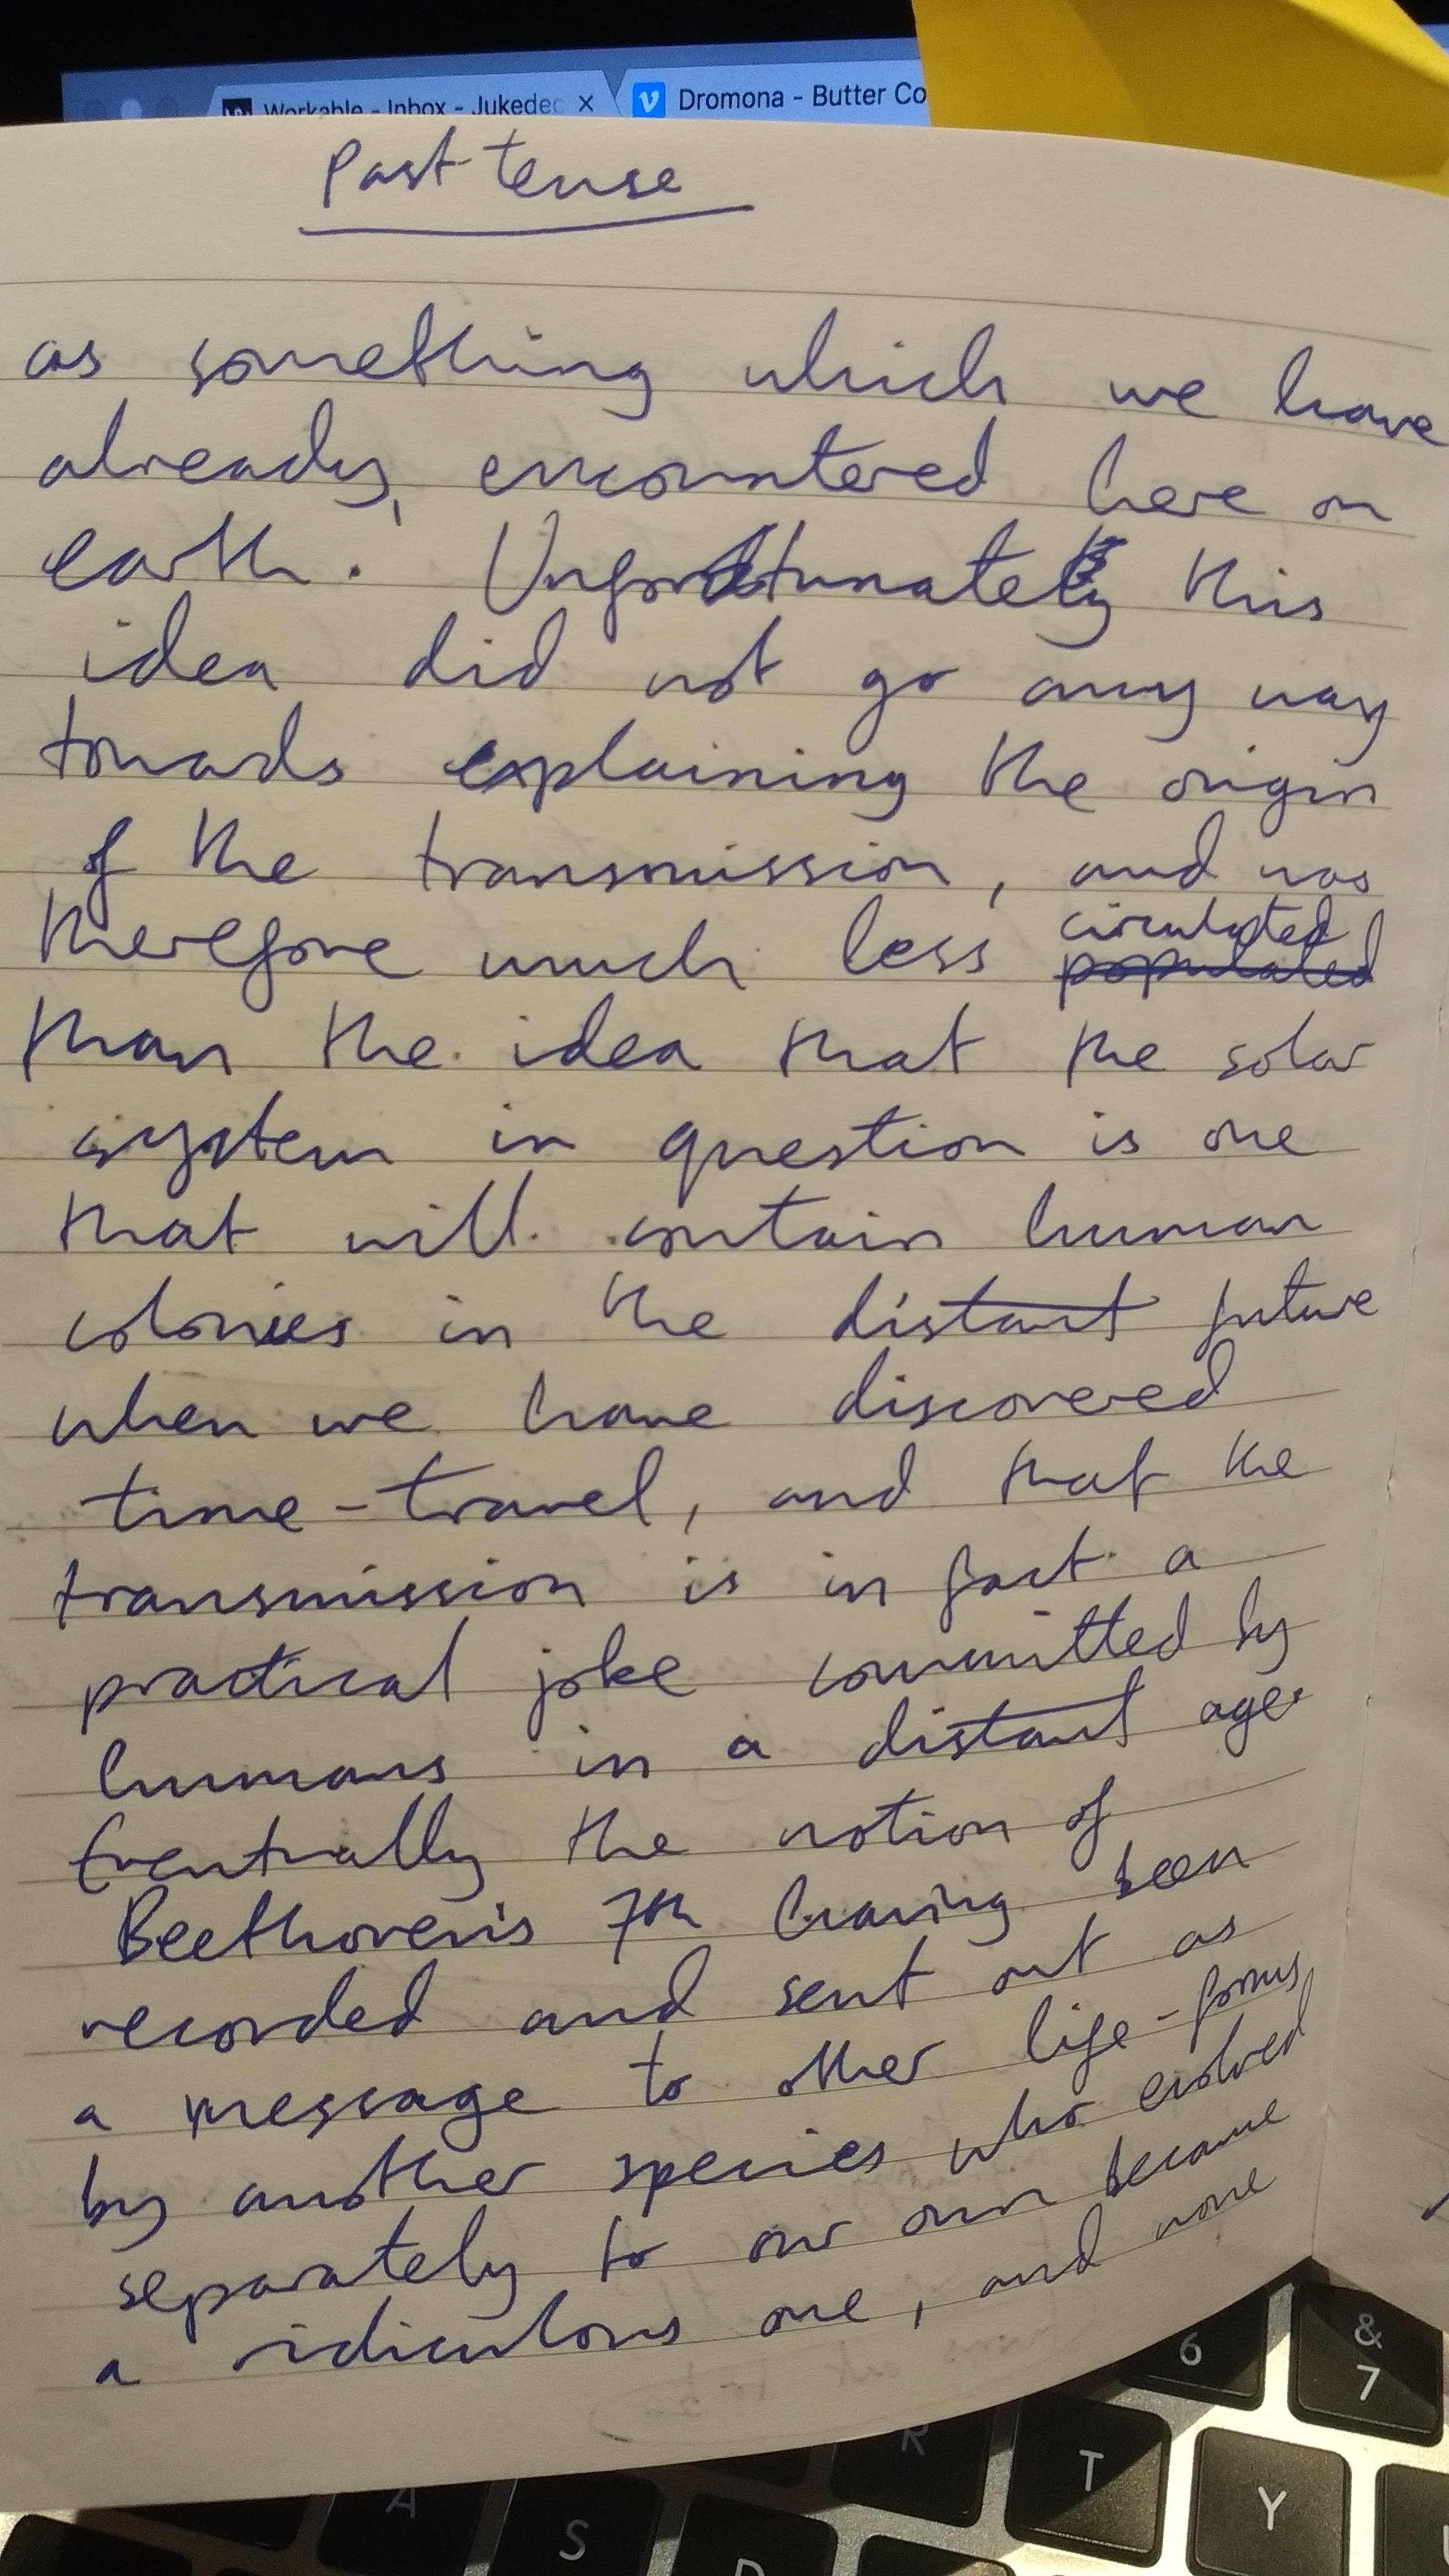 Workable - Inbox - Jukedec × Dromona - Butter Co
Past tense
as something which we have
already encountered here on
earth. Unfortunately this
idea did not go any way
towards explaining the origin
of the transmission, and was
therefore much less circulated
populated
than the idea that the solar
system in question is one
that will contain human
colonies in the distant future
when we have discovered
time-travel, and that the
transmission is in fact a
practical joke committed by
humans in a distant age.
Eventually the notion of
Beethoven's 7th having been
recorded and sent out as
a message to other life-forms
by another species who evolved
separately to our own became
a ridiculous one, and none
6 & 7
R T Y
A S D